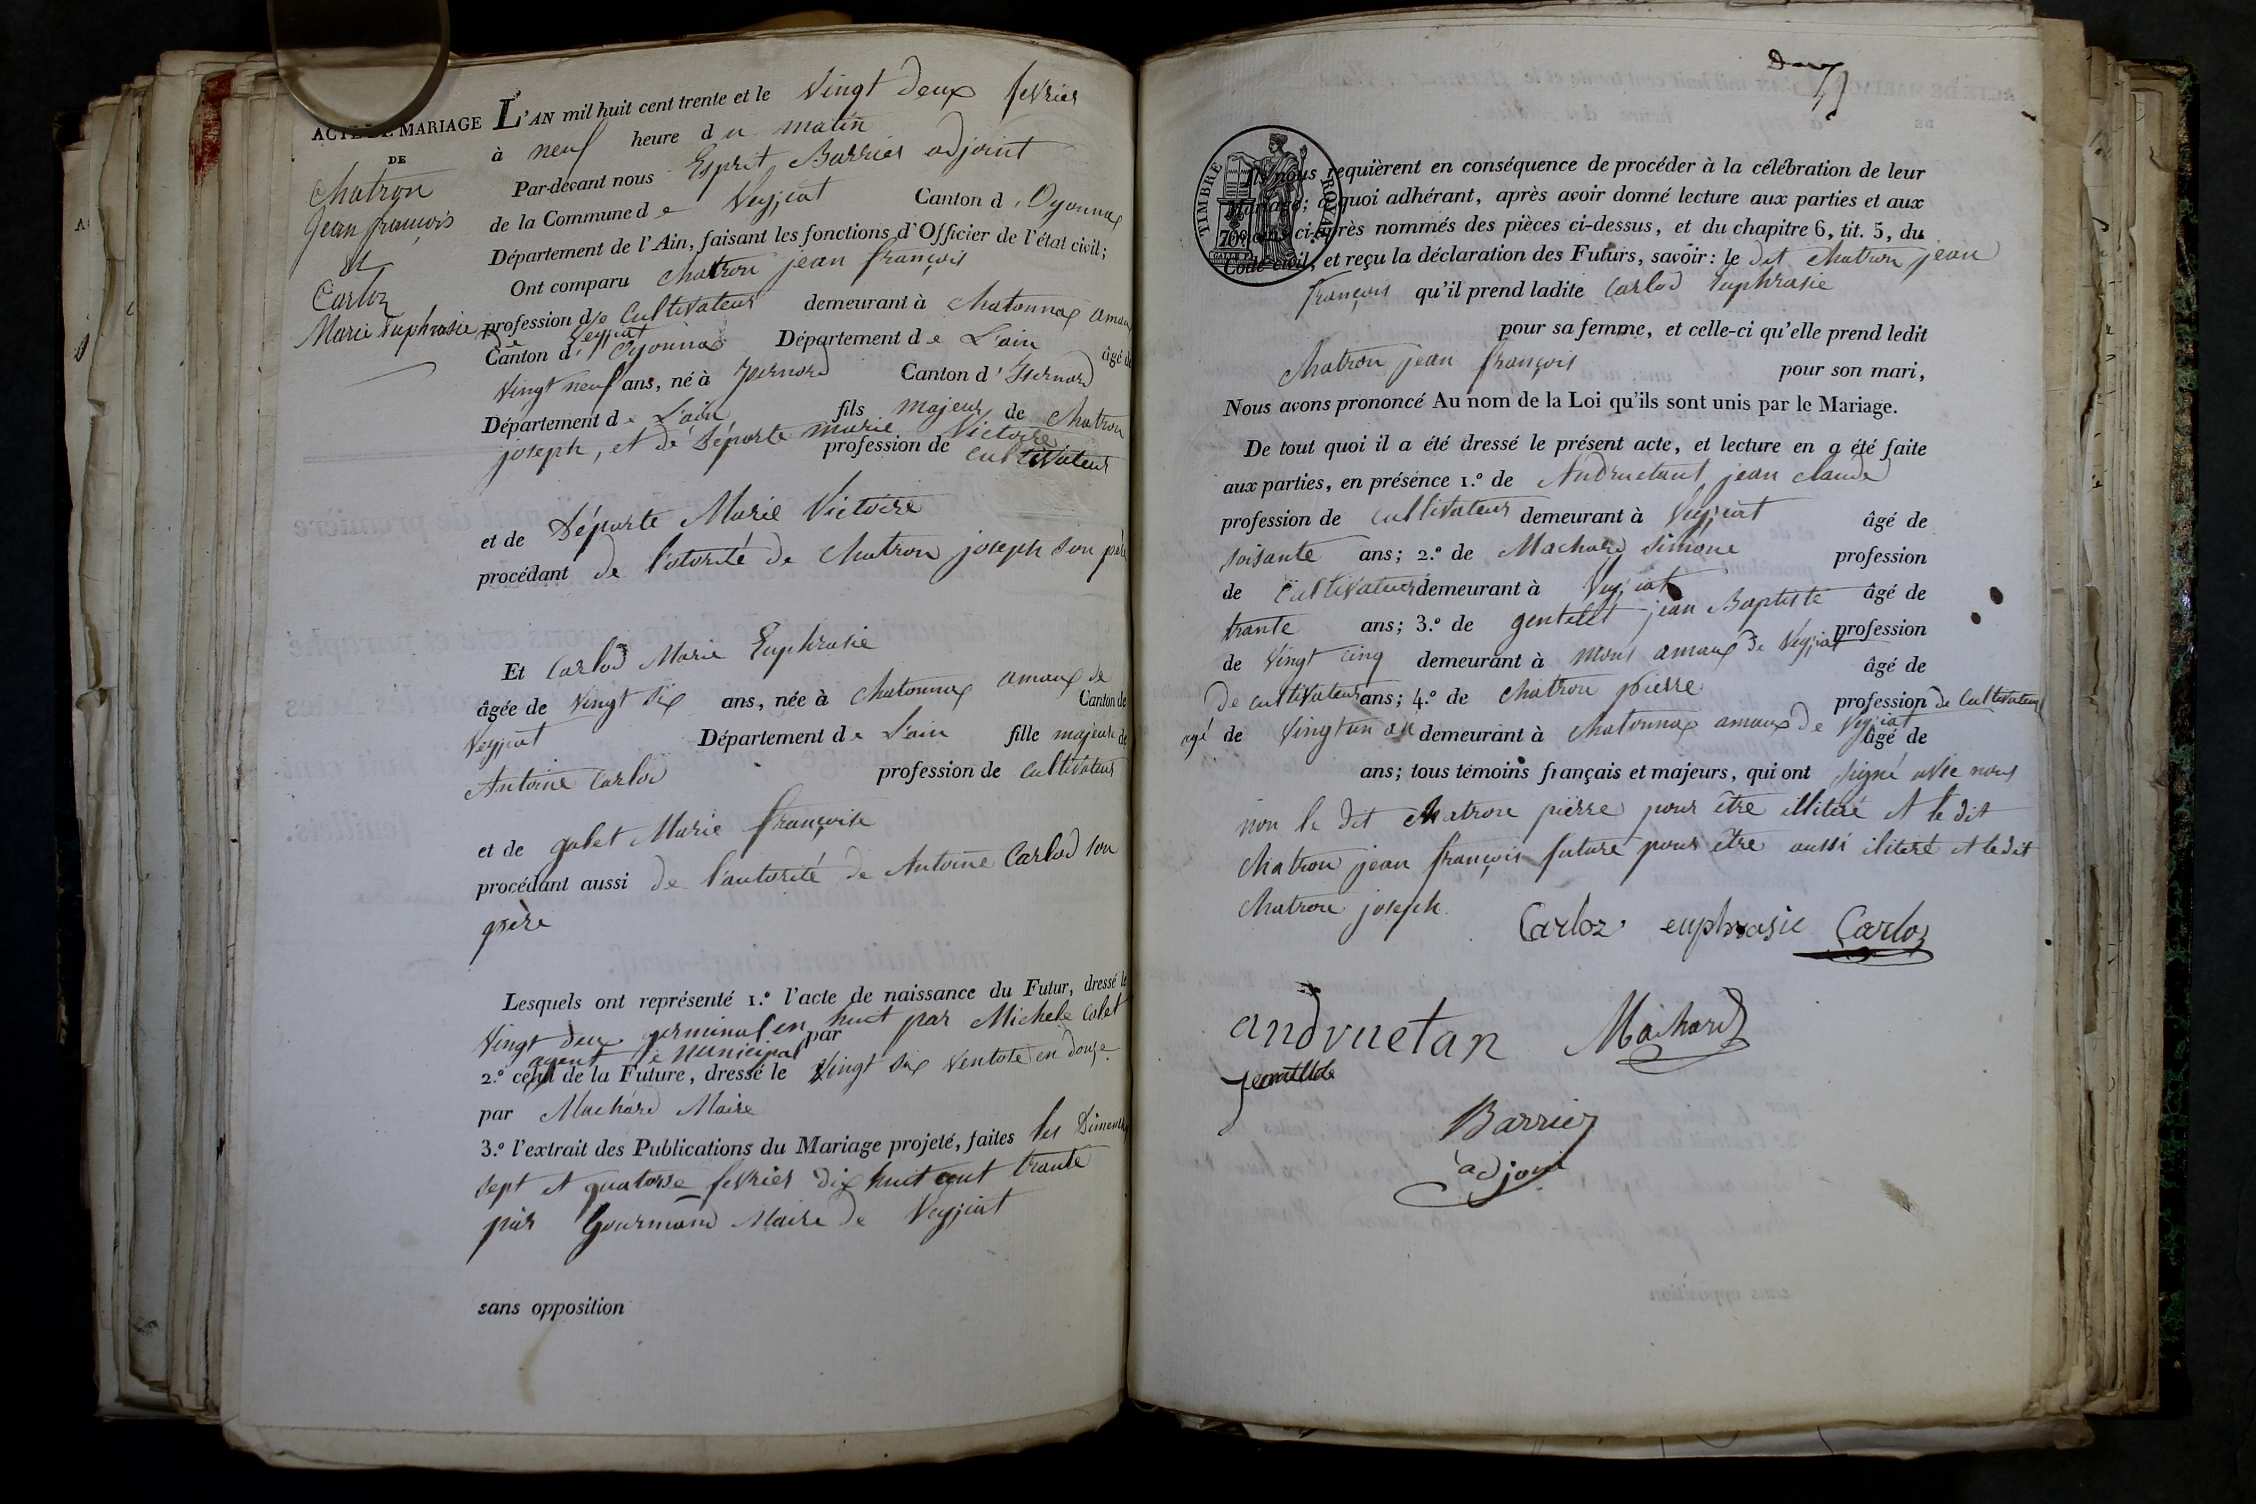 ACTE DE MARIAGE
DE
Chatron
Jean françois
et
Carloz
Marie Euphrasie
L'AN mil huit cent trente et le vingt deux fevrier
à neuf heure du matin
Par-devant nous Esprit Barrier adjoint
de la Commune de Veyziat Canton d'Oyonnax
Département de l'Ain, faisant les fonctions d'Officier de l'état civil;
Ont comparu Chatron jean françois
profession de Cultivateur demeurant à Chatonnax amaux
de Veyziat
Canton d'Oyonnax Département de L'ain âgé de
vingt neuf ans, né à Izernord Canton d'Isernord
Département de L'ain fils majeur de Chatron
joseph, et de Déporte marie Victoire
profession de cultivateur
et de Déporte Marie Victoire
procédant de l'otorité de Chatron joseph son père
Et Carlod Marie Euphrasie
âgée de vingt six ans, née à Chatonnax amaux de
Veyziat Canton de
Département de L'ain fille majeure de
Antoine Carlod profession de Cultivateur
et de gobet Marie françoise
procédant aussi de l'autorité de Antoine Carlod son
père
Lesquels ont représenté 1.º l'acte de naissance du Futur, dressé le
vingt deux germinal en huit par Michele Colet
agent municipal par
2.º celui de la Future, dressé le vingt six ventose en douze
par Machard Maire
3.º l'extrait des Publications du Mariage projeté, faites les Dimenches
sept et quatorse fevrier dix huit cent trante
par Gourmand Maire de Veyziat
sans opposition
TIMBRE ROYAL
70c
Ils nous requièrent en conséquence de procéder à la célébration de leur
Mariage; à quoi adhérant, après avoir donné lecture aux parties et aux
ci-après nommés des pièces ci-dessus, et du chapitre 6, tit. 5, du
Code civil, et reçu la déclaration des Futurs, savoir: le dit Chatron jean
françois qu'il prend ladite Carlod Euphrasie
pour sa femme, et celle-ci qu'elle prend ledit
Chatron jean françois pour son mari,
Nous avons prononcé Au nom de la Loi qu'ils sont unis par le Mariage.
De tout quoi il a été dressé le présent acte, et lecture en a été faite
aux parties, en présence 1.º de Andruetant jean claude
profession de cultivateur demeurant à Veyziat âgé de
soisante ans; 2.º de Machard Simone profession
de Cultivateur demeurant à Veyziat âgé de
trante ans; 3.º de gentelet jean Baptiste profession
de vingt cinq demeurant à mons amaux de Veyziat âgé de
de cultivateur ans; 4.º de Chatron pierre profession de Cultivateur
agé de vingt un an demeurant à Chatonnax amaux de Veyziat âgé de
ans; tous témoins français et majeurs, qui ont signé avec nous
non le dit Chatron pierre pour être illiteré et le dit
Chatron jean françois future pour être aussi iliteré et le dit
Chatron joseph.
Carloz euphrasie Carloz
andruetan Machard
Barrier
adjoint